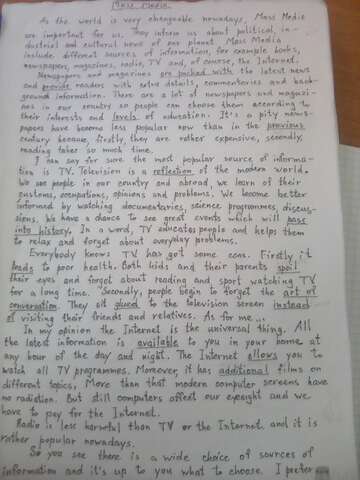 Mass Media
As the world is very changeable nowadays, Mass Media
are important for us. They inform us about political, in-
dustrial and cultural news of our planet. Mass Media
include different sources of information, for example books,
newspapers, magazines, radio, TV and, of course, the Internet.
Newspapers and magazines are packed with the latest news
and provide readers with extra details, commentaries and back-
ground information. There are a lot of newspapers and magazi-
nes in our country so people can choose them according to
their interests and levels of education. It's a pity news-
papers have become less popular now than in the previous
century because firstly they are rather expensive, secondly,
reading takes so much time.
I can say for sure the most popular source of informa-
tion is TV. Television is a reflection of the modern world.
We see people in our country and abroad, we learn of their
customs, occupations, opinions and problems. We become better
informed by watching documentaries, science programmes, discus-
sions. We have a chance to see great events which will pass
into history. In a word, TV educates people and helps them
to relax and forget about everyday problems.
Everybody knows TV has got some cons. Firstly it
leads to poor health. Both kids and their parents spoil
their eyes and forget about reading and sport watching TV
for a long time. Secondly, people begin to forget the art of
conversation. They sit glued to the television screen instead
of visiting their friends and relatives. As for me...
In my opinion the Internet is the universal thing. All
the latest information is available to you in your home at
any hour of the day and night. The Internet allows you to
watch all TV programmes. Moreover, it has additional films on
different topics. More than that modern computer screens have
no radiation. But still computers affect our eyesight and we
have to pay for the Internet.
Radio is less harmful than TV or the Internet and it is
rather popular nowadays.
So you see there is a wide choice of sources of
information and it's up to you what to choose. I prefer ...